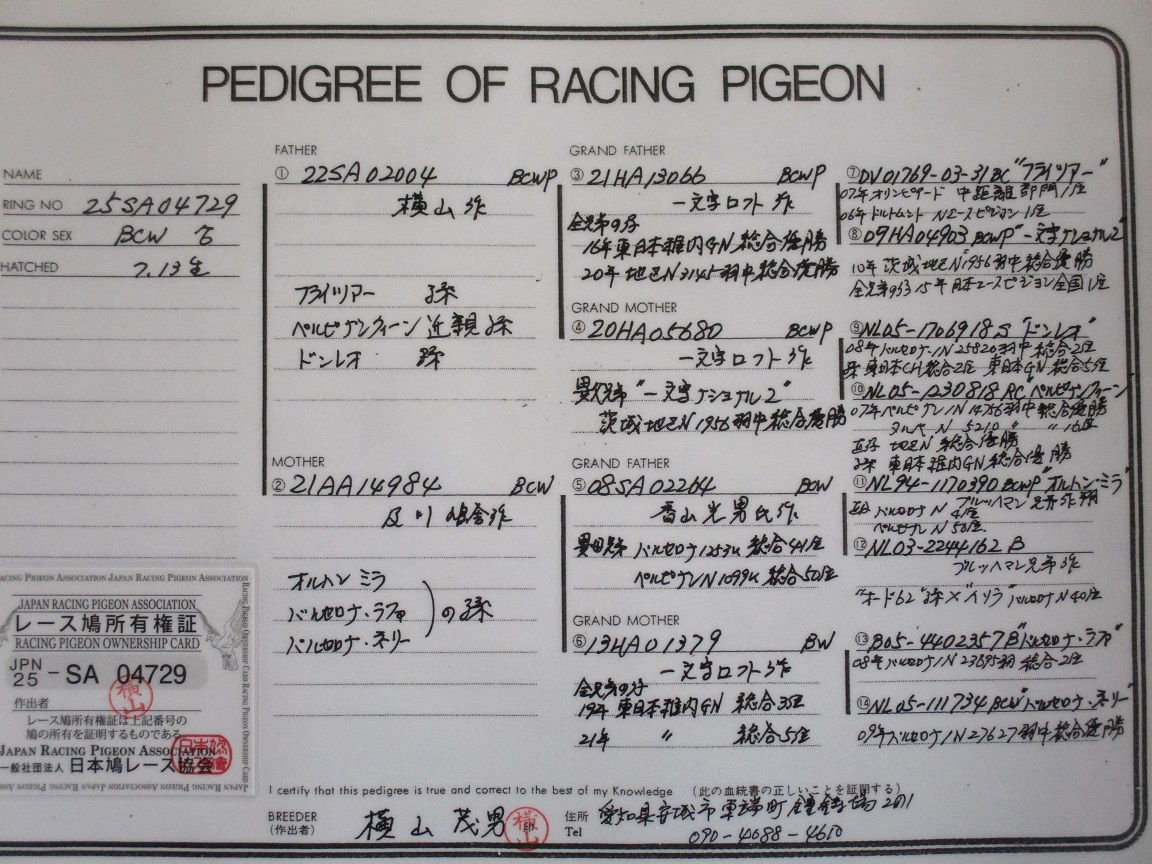 PEDIGREE OF RACING PIGEON
NAME
RING NO 25SA04729
COLOR SEX BCW ♂
HATCHED 7.13生
RACING PIGEON ASSOCIATION JAPAN RACING PIGEON ASSOCIATION
JAPAN RACING PIGEON ASSOCIATION
レース鳩所有権証
RACING PIGEON OWNERSHIP CARD
JPN 25 - SA 04729
作出者
横山
レース鳩所有権証は上記番号の
鳩の所有を証明するものである
JAPAN RACING PIGEON ASSOCIATION
一般社団法人 日本鳩レース協会
FATHER
① 22SA02004 BCWP
横山作
フライツアー 孫
ペルピナンクィーン近親孫
ドンレオ 孫
MOTHER
② 21AA14984 BCW
及川鳩舎作
オルハン ミラ
バルセロナ・ラファ
バルセロナ・ネリー
の孫
GRAND FATHER
③ 21HA13066 BCWP
一文字ロフト作
全兄弟の仔
16年東日本稚内GN 総合優勝
20年地区N3145羽中総合優勝
GRAND MOTHER
④ 20HA05680 BCWP
一文字ロフト作
異父兄弟"一文字ナショナル2"
茨城地区N1956羽中総合優勝
GRAND FATHER
⑤ 08SA02264 BCW
香山光男氏作
バルセロナ1253K 総合441座
ペルピナンN1099K 総合50座
GRAND MOTHER
⑥ 13HA01379 BW
一文字ロフト作
全兄弟の仔
19年東日本稚内GN 総合3位
21年 〃 総合5位
⑦DV01769-03-31BC"フライツアー"
07年オリンピアード 中距離部門1座
06年ドルトムント Nエースピジョン1座
⑧09HA04903 BCWP"一文字ナショナル2"
10年茨城地区N1956羽中総合優勝
全兄弟の孫15年日本エースピジョン全国1座
⑨NL05-1706918 S "ドンレオ"
08年バルセロナIN25820羽中総合2座
孫 東日本CH総合2座 東日本GN総合5座
⑩NL05-1230818 RC"ペルピナンクィーン"
07年ペルピナンIN14756羽中総合優勝
N 5210 〃 〃 16座
直仔 地区N 総合優勝
孫 東日本稚内GN総合優勝
⑪NL94-1170390 BCWP"オルハン・ミラ"
ブルッハマン兄弟作翔
バルセロナN 4座
ペルピナンN 50座
⑫NL03-2244162 B
ブルッハマン兄弟作
バルセロナN40座
⑬B05-4402357B"バルセロナ・ラファ"
08年バルセロナIN23695羽 総合2座
⑭NL05-111734 BCW"バルセロナ・ネリー"
09年バルセロナIN27627羽中総合優勝
I certify that this pedigree is true and correct to the best of my Knowledge (此の血統書の正しいことを証明する)
BREEDER
(作出者)
横山茂男 印
住所 愛知県安城市東端町鐘鋳場201
Tel 090-4088-4610